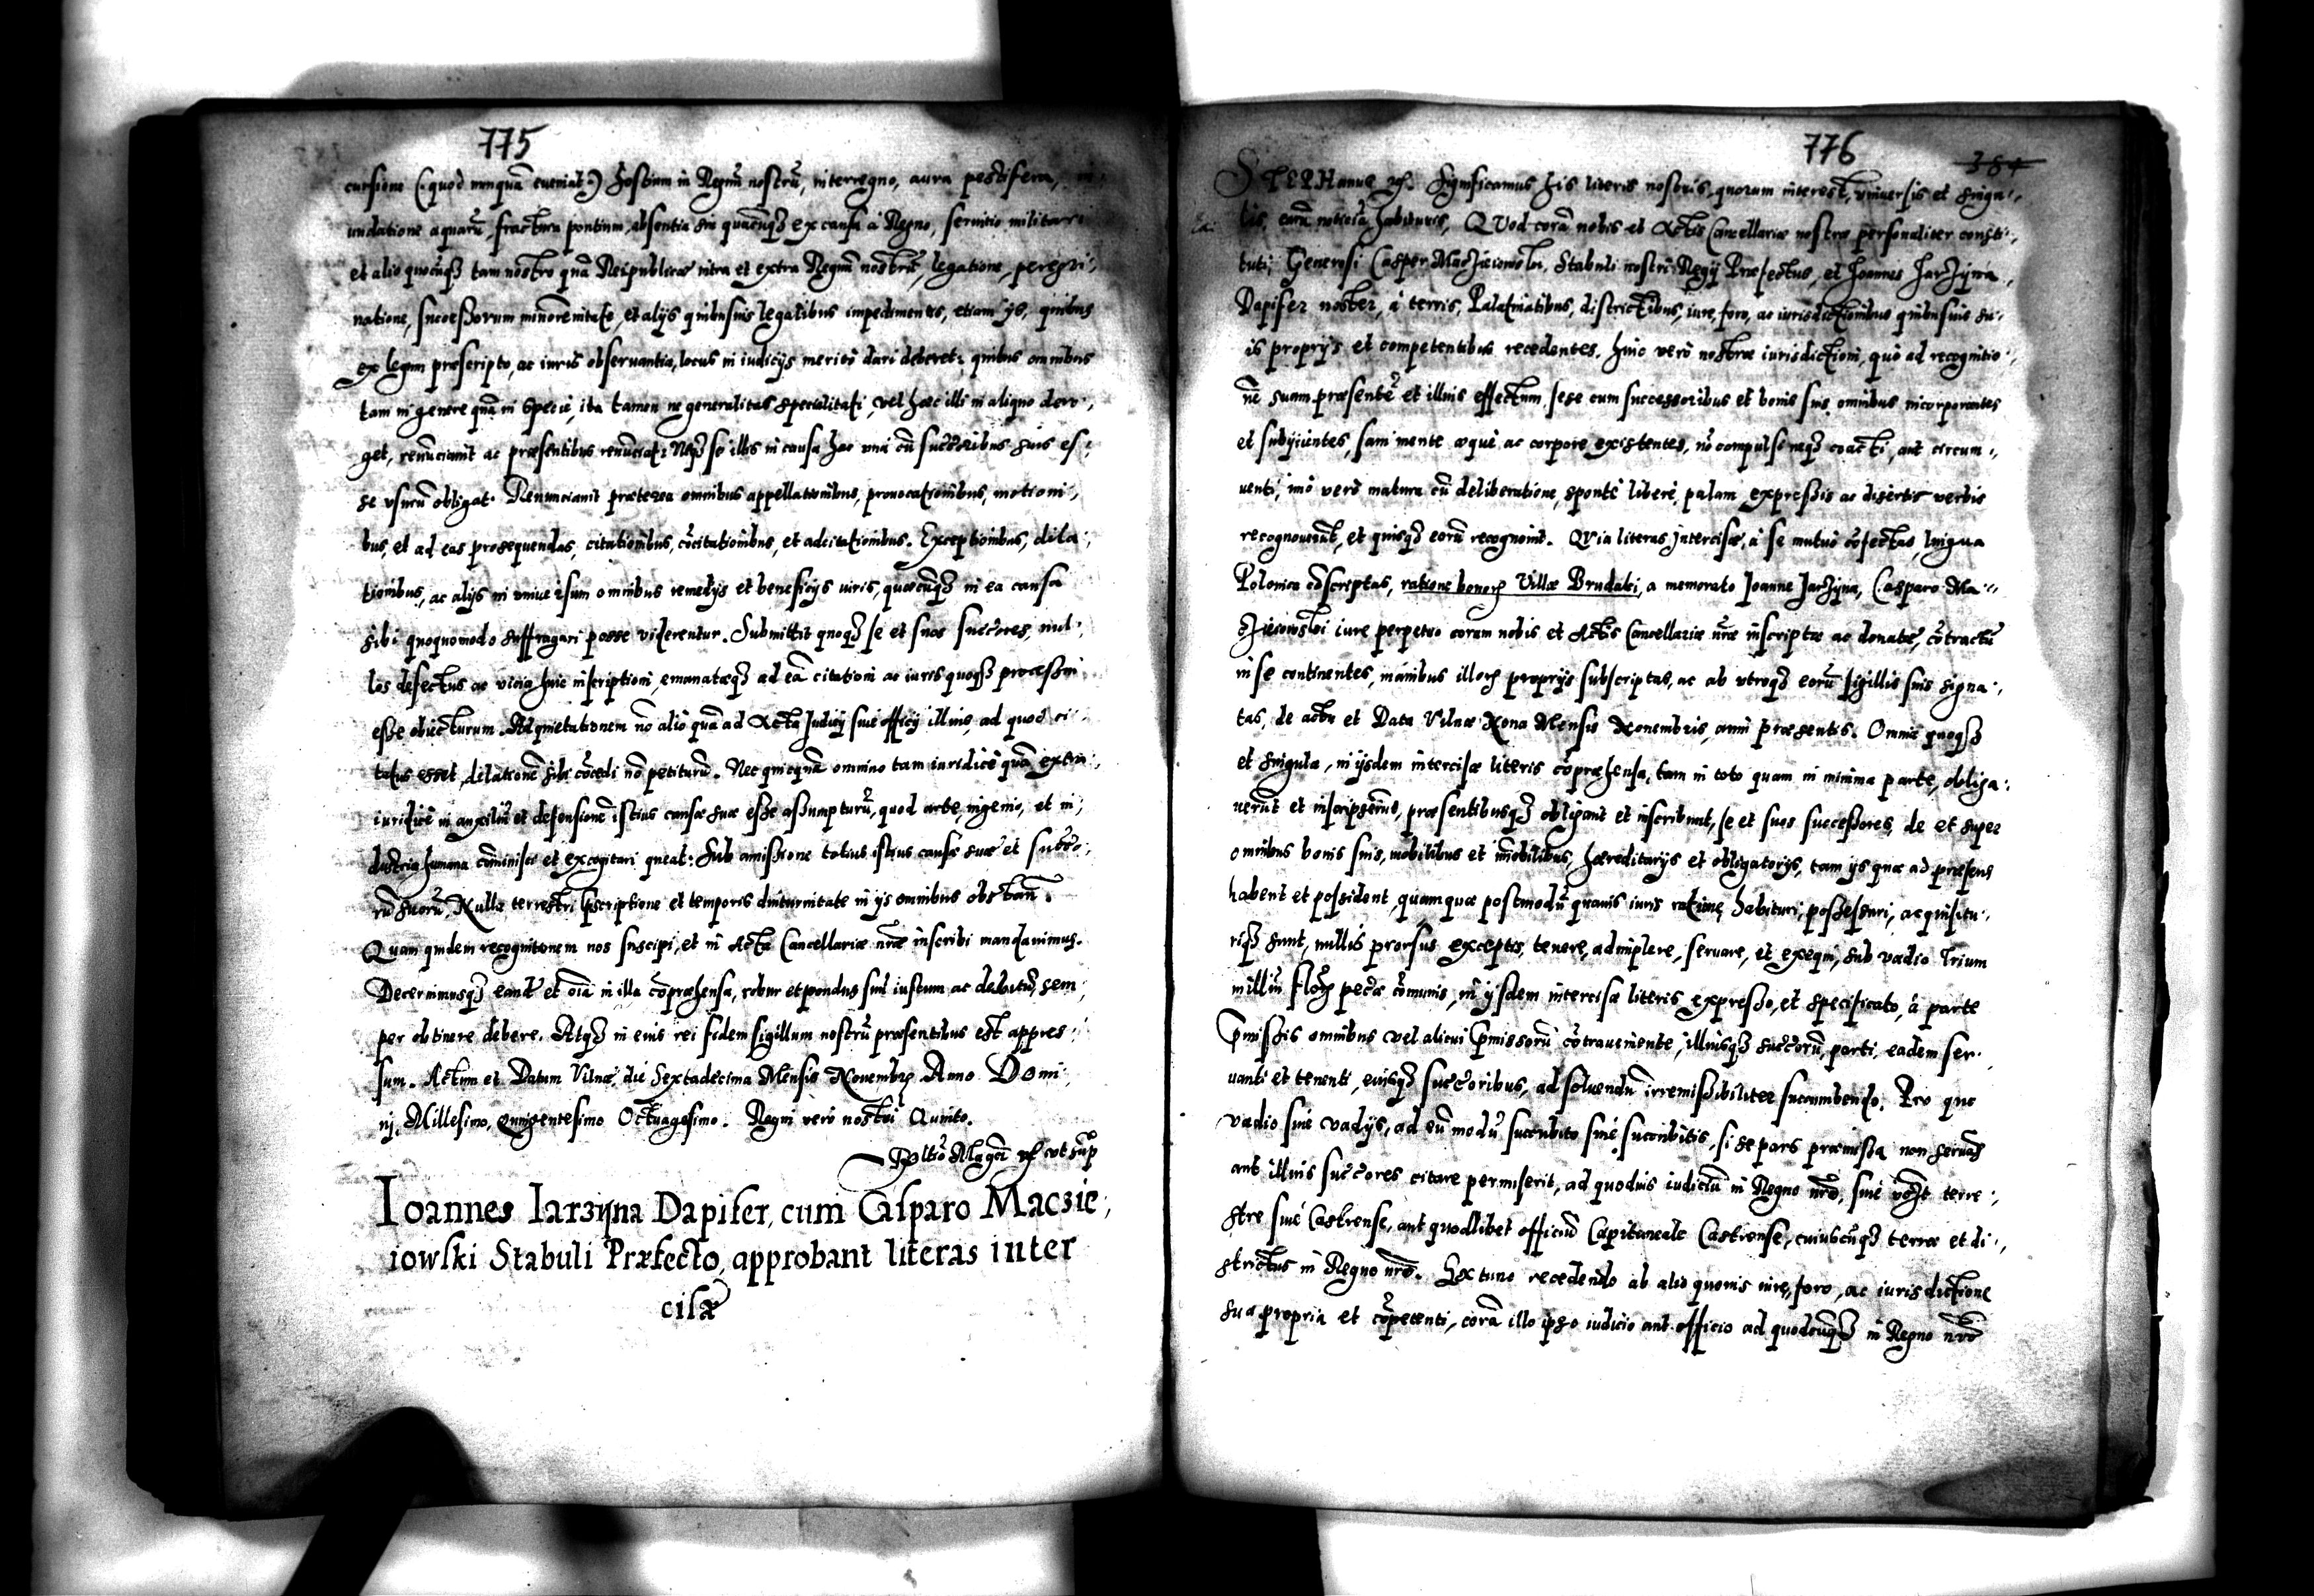 775
cursione (quod nunquã eueniat) hostium in Regnũ nostrũ, interregno, aura pestifera, in
undatione aquarũ, fractura pontium, absentia sua quacũqȝ ex causa à Regno, seruitio militari
et alio quocũqȝ tam nostro quã Reipublicæ intra et extra Regnũ nostrũ, legatione, peregri,
natione, successorum minorennitate, et alijs quibusuis legalibus impedimentis, etiam ijs, quibus
ex legum præscripto, ac iuris obseruantia, locus in iudicijs merito dari deberet: quibus omnibus
tam in genere quã in specie, ita tamen ne generalitas specialitati, vel hæc illi in aliquo dero,
get, renũciauit ac præsentibus renũciat: Neqȝ se illis in causa hac vna cũ succ̃oribus suis es,
se vsurũ obligat. Renunciauit præterea omnibus appellationibus, prouocationibus, motioni,
bus, et ad eas prosequendas, citationibus, cõcitationibus, et adcitationibus. Exceptionibus, dila,
tionibus, ac alijs in vniuersum omnibus remedijs et beneficijs iuris, quæcũqȝ in ea causa
sibi quoquomodo suffragari posse viderentur. Submittit quoqȝ se et suos succ̃ores, nul,
los defectus ac vicia huic inscriptioni, emanatæqȝ ad eã citationi ac iuris quoqȝ processui
esse obiecturum. Adquietationem nõ alio quã ad Acta Iudicij siue officij illius, ad quod ci,
tatus esset, dilationẽ sibi cõcedi nõ petiturũ. Nec quicquã omnino tam iuridicè quã extra,
iuridicè in auxiliũ et defensionẽ istius causæ suæ esse assumpturũ, quod arte, ingenio, et in,
dustria humana cõminisci et excogitari queat: Sub amissione totius istius causæ suæ et succ̃o,
rũ suorũ. Nulla terrestri p̃scriptione et temporis diuturnitate in ijs omnibus obstañ.
Quam quidem recognitionem nos suscipi, et in Acta Cancellariæ nr̃æ inscribi mandauimus.
Decernimusqȝ eandẽ et oĩa in illa cõpræhensa, robur et pondus suũ iustum ac debitũ, sem,
per obtinere debere. Atqȝ in eius rei fidem sigillum nostrũ præsentibus est appres,
sum. Actum et Datum Vilnæ, die Sextadecima Mensis Nouembr̃ Anno Domi,
nj. Millesimo, quingentesimo Octuagesimo. Regni verò nostri Quinto.
vt sup̃
Ioannes Iarzyna Dapifer, cum Casparo Maczie,
iowski Stabuli Præfecto, approbant literas inter
cisæ
776
384
STEPHanus Significamus his literis nostris, quorum interest, vniuersis et singu,
lis, earũ noticiã habituris, QVod corã nobis et Actis Cancellariæ nostræ personaliter consti,
tuti, Generosi Casper Maczieiowski, Stabuli nostri Regij Præfectus, et Joannes Jarzyna
Dapifer noster, à terris, Palatinatibus, districtibus, iure, foro, ac iurisdictionibus quibusuis su,
is proprijs et competentibus recedentes, huic verò nostræ iurisdictioni, quò ad recognitio,
nẽ suam præsentẽ et illius effectum, sese cum successoribus et bonis suis omnibus incorporantes
et subijcientes, sani mente æquè ac corpore existentes, nõ compulsi neqȝ coacti, aut circum,
uenti, imò verò matura cũ deliberatione, spontè liberè, palam, expressis ac disertis verbis
recognouerũt, et quisqȝ eorũ recognouit. QVia literas Intercisæ, à se mutuò cõfectas, lingua
Polonica cõscriptas, ratione bonorũ Villæ Brudaki, a memorato Joanne Jarzyna, Casparo Ma,
czieiowski iure perpetuo coram nobis et Actis Cancellariæ nr̃æ inscriptæ ac donatæ, cõtractũ
in se continentes, manibus illorũ proprijs subscriptas, ac ab vtroqȝ eorũ sigillis suis signa,
tas, de actu et Data Vilnæ Nona Mensis Nouembris, anni præsentis. Omnia quoqȝ
et singula, in ijsdem intercisæ literis cõpræhensa, tam in toto quam in minima parte, obliga,
uerũt et inscripserũt, præsentibusqȝ obligant et inscribunt, se et suos successores, de et super
omnibus bonis suis, mobilibus et im̃obilibus, hæreditarijs et obligatorijs, tam ijs quæ ad præsens
habent et possident, quam quæ postmodũ quauis iuris ratione habituri, possessuri, acquisitu,
riqȝ sunt, nullis prorsus exceptis, tenere, adimplere, seruare, et exequi, sub vadio Trium
milliũ Flor̃ pec̃æ cõmunis, in ijsdem intercisæ literis expresso, et specificato, à parte
p̃missis omnibus vel alicui p̃missorũ cõtraueniente, illiusqȝ succ̃orũ, parti eadem ser,
uanti et tenenti, eiusqȝ succ̃oribus, ad soluendũ irremissibiliter succumbendo. Pro quo
vadio siue vadijs, ad eũ modũ succubito siue succubitis, si se pars præmissa non seruañ
aut illius succ̃ores citare permiserit, ad quoduis iudiciũ in Regno nr̃o, siue terre,
stre siue Castrense, aut quodlibet officiũ Capitaneale Castrense, cuiuscũqȝ terræ et di,
strictus in Regno nr̃o. Ex tunc recedendo ab alio quouis iure, foro, ac iurisdictione
sua propria et cõpetenti, corã illo ipso iudicio aut officio ad quodcũqȝ in Regno nr̃o